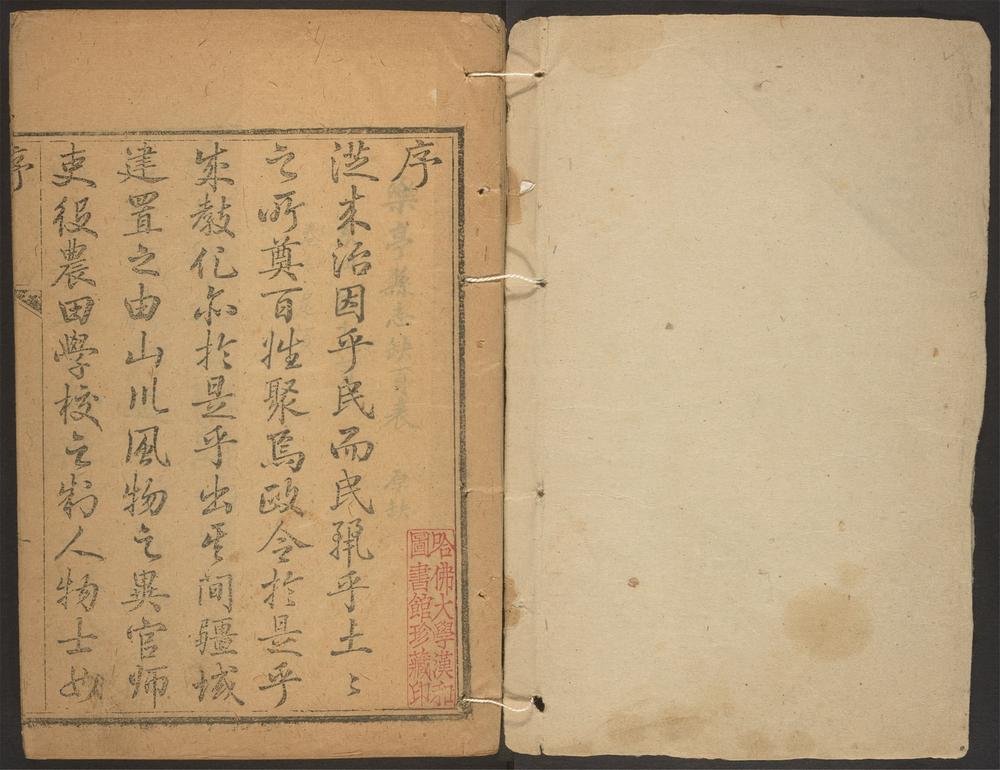 序
從來治因乎民而民麗乎土〻
之所奠百姓聚焉政令於是乎
成教化亦於是乎出其間疆域
建置之由山川風物之異官師
吏役農田學校之制人物士女
序
樂亭縣志缺頁表
哈佛大學漢和
圖書館珍藏印